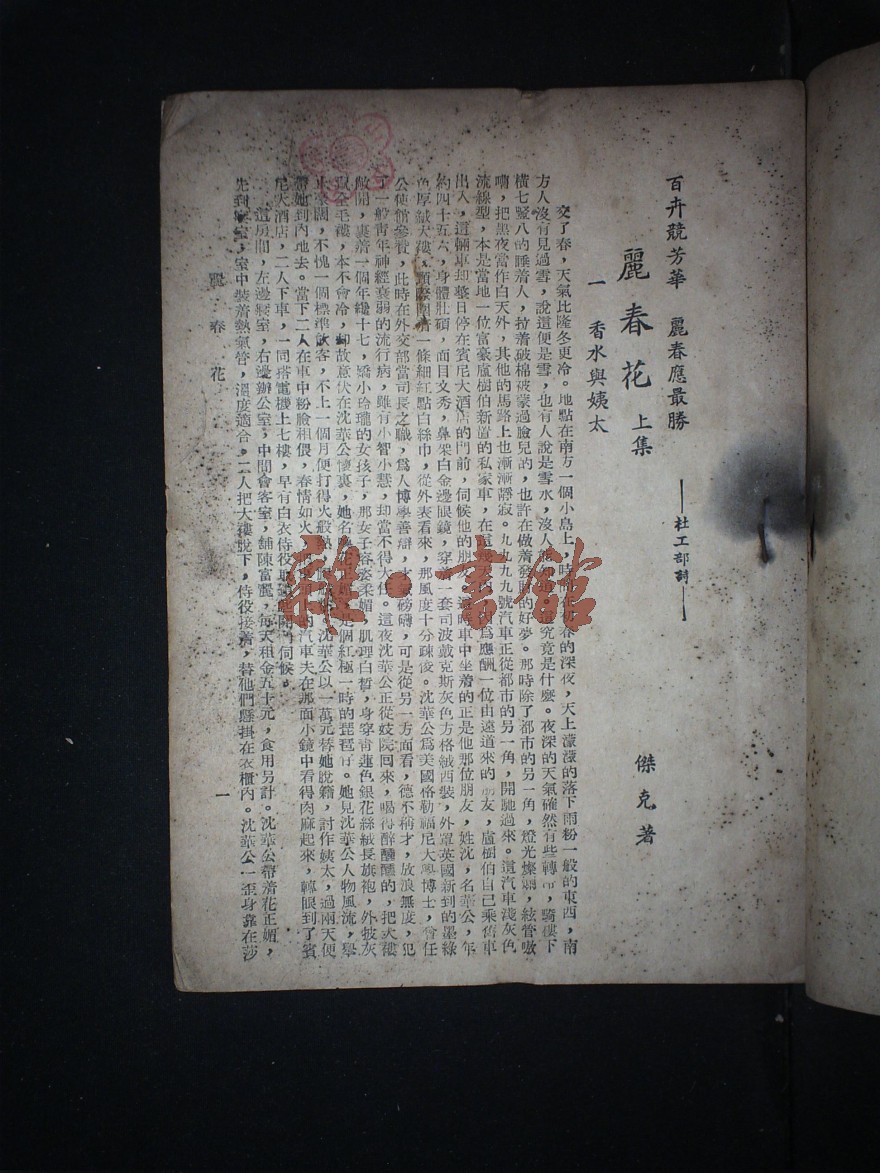 百卉競芳華　麗春應最勝
——杜工部詩——
麗春花 上集
傑克著
一　香水與姨太
交了春，天氣比隆冬更冷。地點在南方一個小島上，時間在初春的深夜，天上濛濛的落下雨粉一般的東西，南
方人沒有見過雪，說這便是雪，也有人說是雪水，沒人能 究竟是什麼。夜深的天氣確然有些轉 ，騎樓下
橫七豎八的睡着人，拉着破棉被蒙過臉兒的，也許在做着發財的好夢。那時除了都市的另一角，燈光燦爛，絃管嗷
嘈，把黑夜當作白天外，其他的馬路上也漸漸靜寂。九九九九號汽車正從都市的另一角，開馳過來。這汽車淺灰色
流線型，本是當地一位富豪盧樹伯新置的私家車，在這 為應酬一位由遠道來的朋友，盧樹伯自己乘舊車
出入，這輛車却整日停在賓尼大酒店的門前，伺候他的朋友。這時車中坐着的正是他那位朋友，姓沈，名華公，年
約四十五六，身體壯碩，面目文秀，鼻架白金邊眼鏡，穿着一套司波戴克斯灰色方格絨西裝，外罩英國新到的墨綠
色厚絨大褸，頸際圍着一條細紅點白絲巾，從外表看來，那風度十分疎俊。沈華公為美國格勒福尼大學博士，曾任
公使館參贊，此時在外交部當司長之職，為人博學善辯，才 磅礴，可是從另一方面看，德不稱才，放浪無度，犯
了一般青年神經衰弱的流行病，雖有小智小慧，却當不得大任。這夜沈華公正從妓院回來，喝得醉醺醺的，把大褸
敞開，裏着一個年纔十七，嬌小玲瓏的女孩子，那女子容姿柔媚，肌理白皙，身穿青蓮色銀花絲絨長旗袍，外披灰
鼠金毛褸，本不會冷，却故意伏在沈華公懷裏，她名 花正媚，是個紅極一時的琵琶仔。她見沈華公人物風流，舉
止豪闊，不愧一個標準歡客，不上一個月便打得火般熱， 沈華公以一萬元替她脫籍，討作姨太，過兩天便
帶她到內地去。當下二人在車中粉臉相偎，春情如火， 的汽車夫在那面小鏡中看得肉麻起來，轉眼到了賓
尼大酒店，二人下車，一同搭電機上七樓，早有白衣侍役 開門伺候。
這房間，左邊寢室，右邊辦公室，中間會客室，舖陳富麗，每天租金五十元，食用另計。沈華公帶着花正媚，
先到寢室，室中裝着熱氣管，溫度適合。二人把大褸脫下，侍役接着，替他們懸掛在衣櫃內。沈華公一歪身靠在莎
麗春花
一
雜·書館